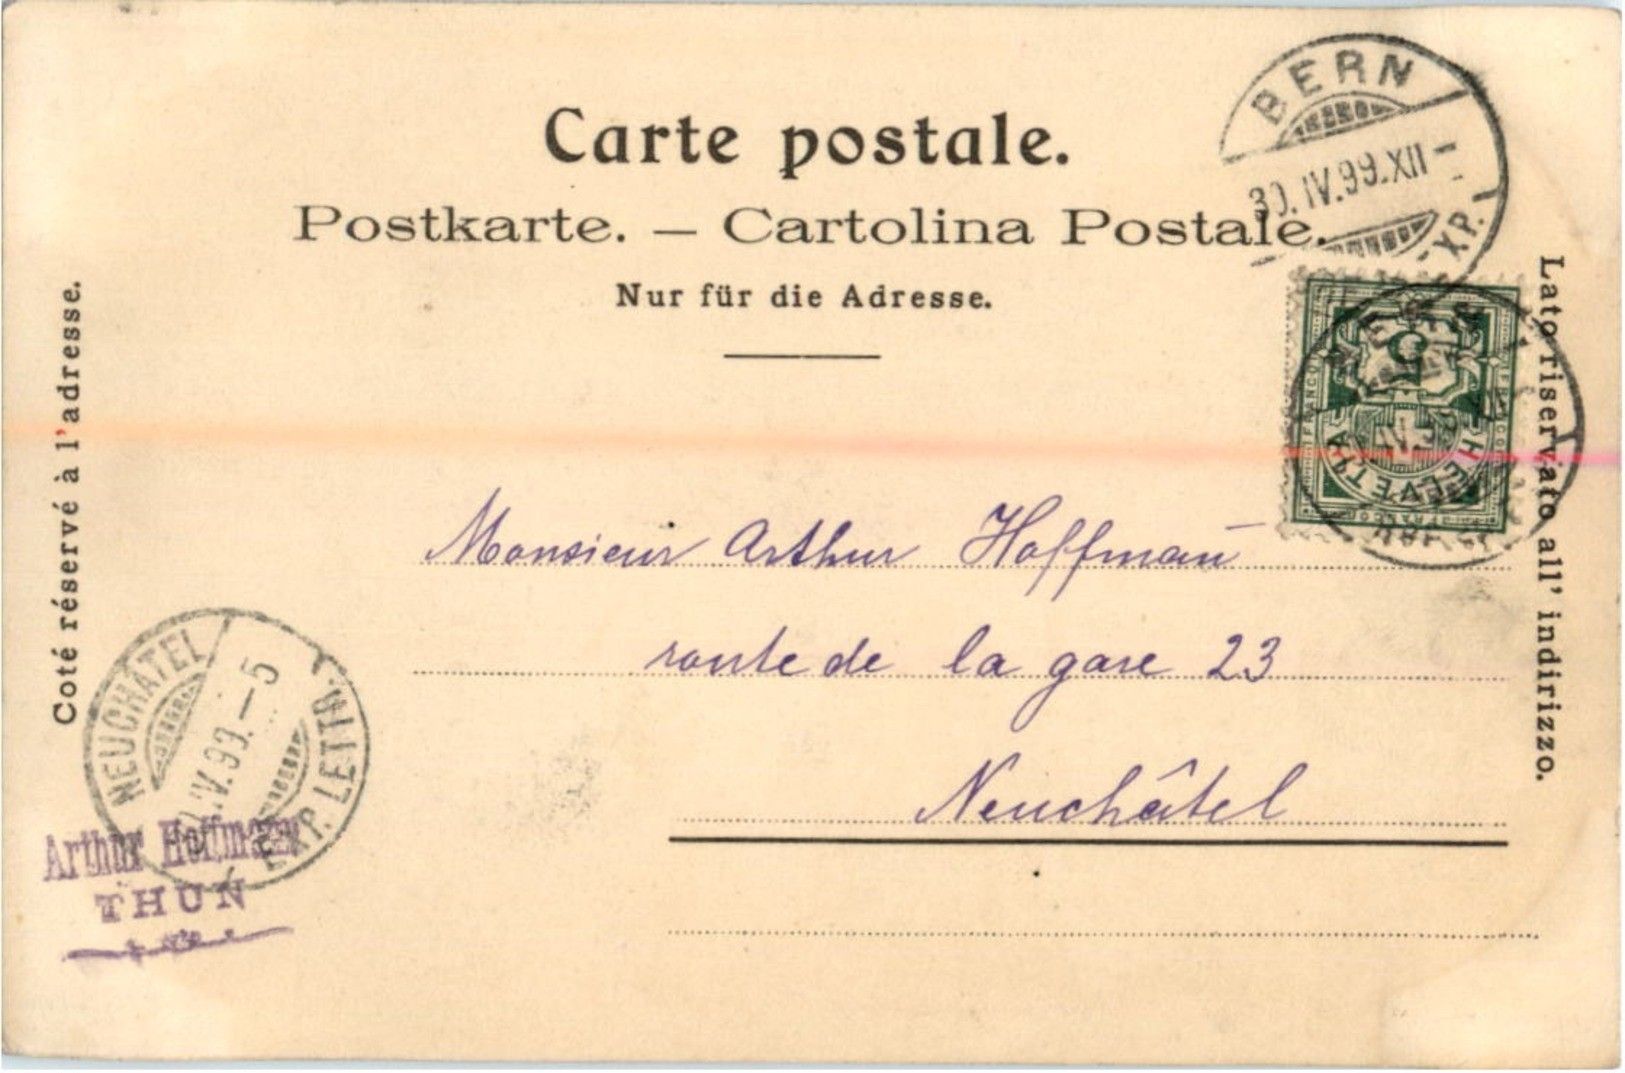 Carte postale.
Postkarte. — Cartolina Postale.
Nur für die Adresse.
Coté réservé à l'adresse.
Lato riservato all' indirizzo.
BERN
30. IV. 99. XII –
EXP. L
5
FRANCO
HELVETIA
Monsieur Arthur Hoffman̄
route de la gare 23
Neuchâtel
NEUCHATEL
IV. 99. – 5
EXP. LETTR.
Arthur Hoffmann
THUN